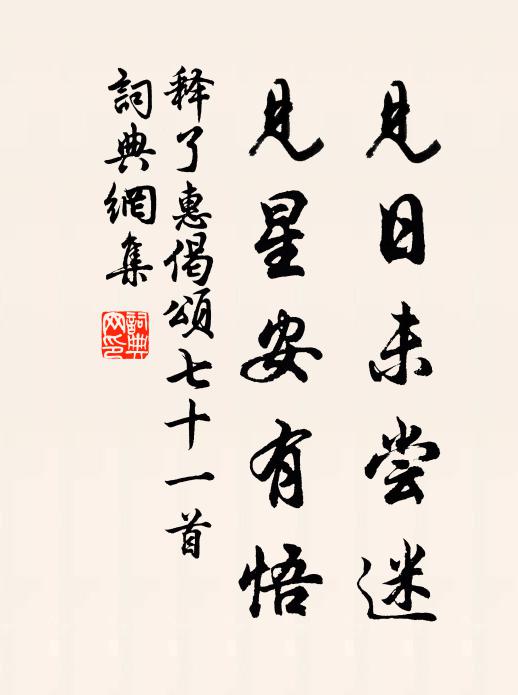 見日未尝迷
見星安有悟
释了惠偈頌七十一首
詞典網集
詞典
网印